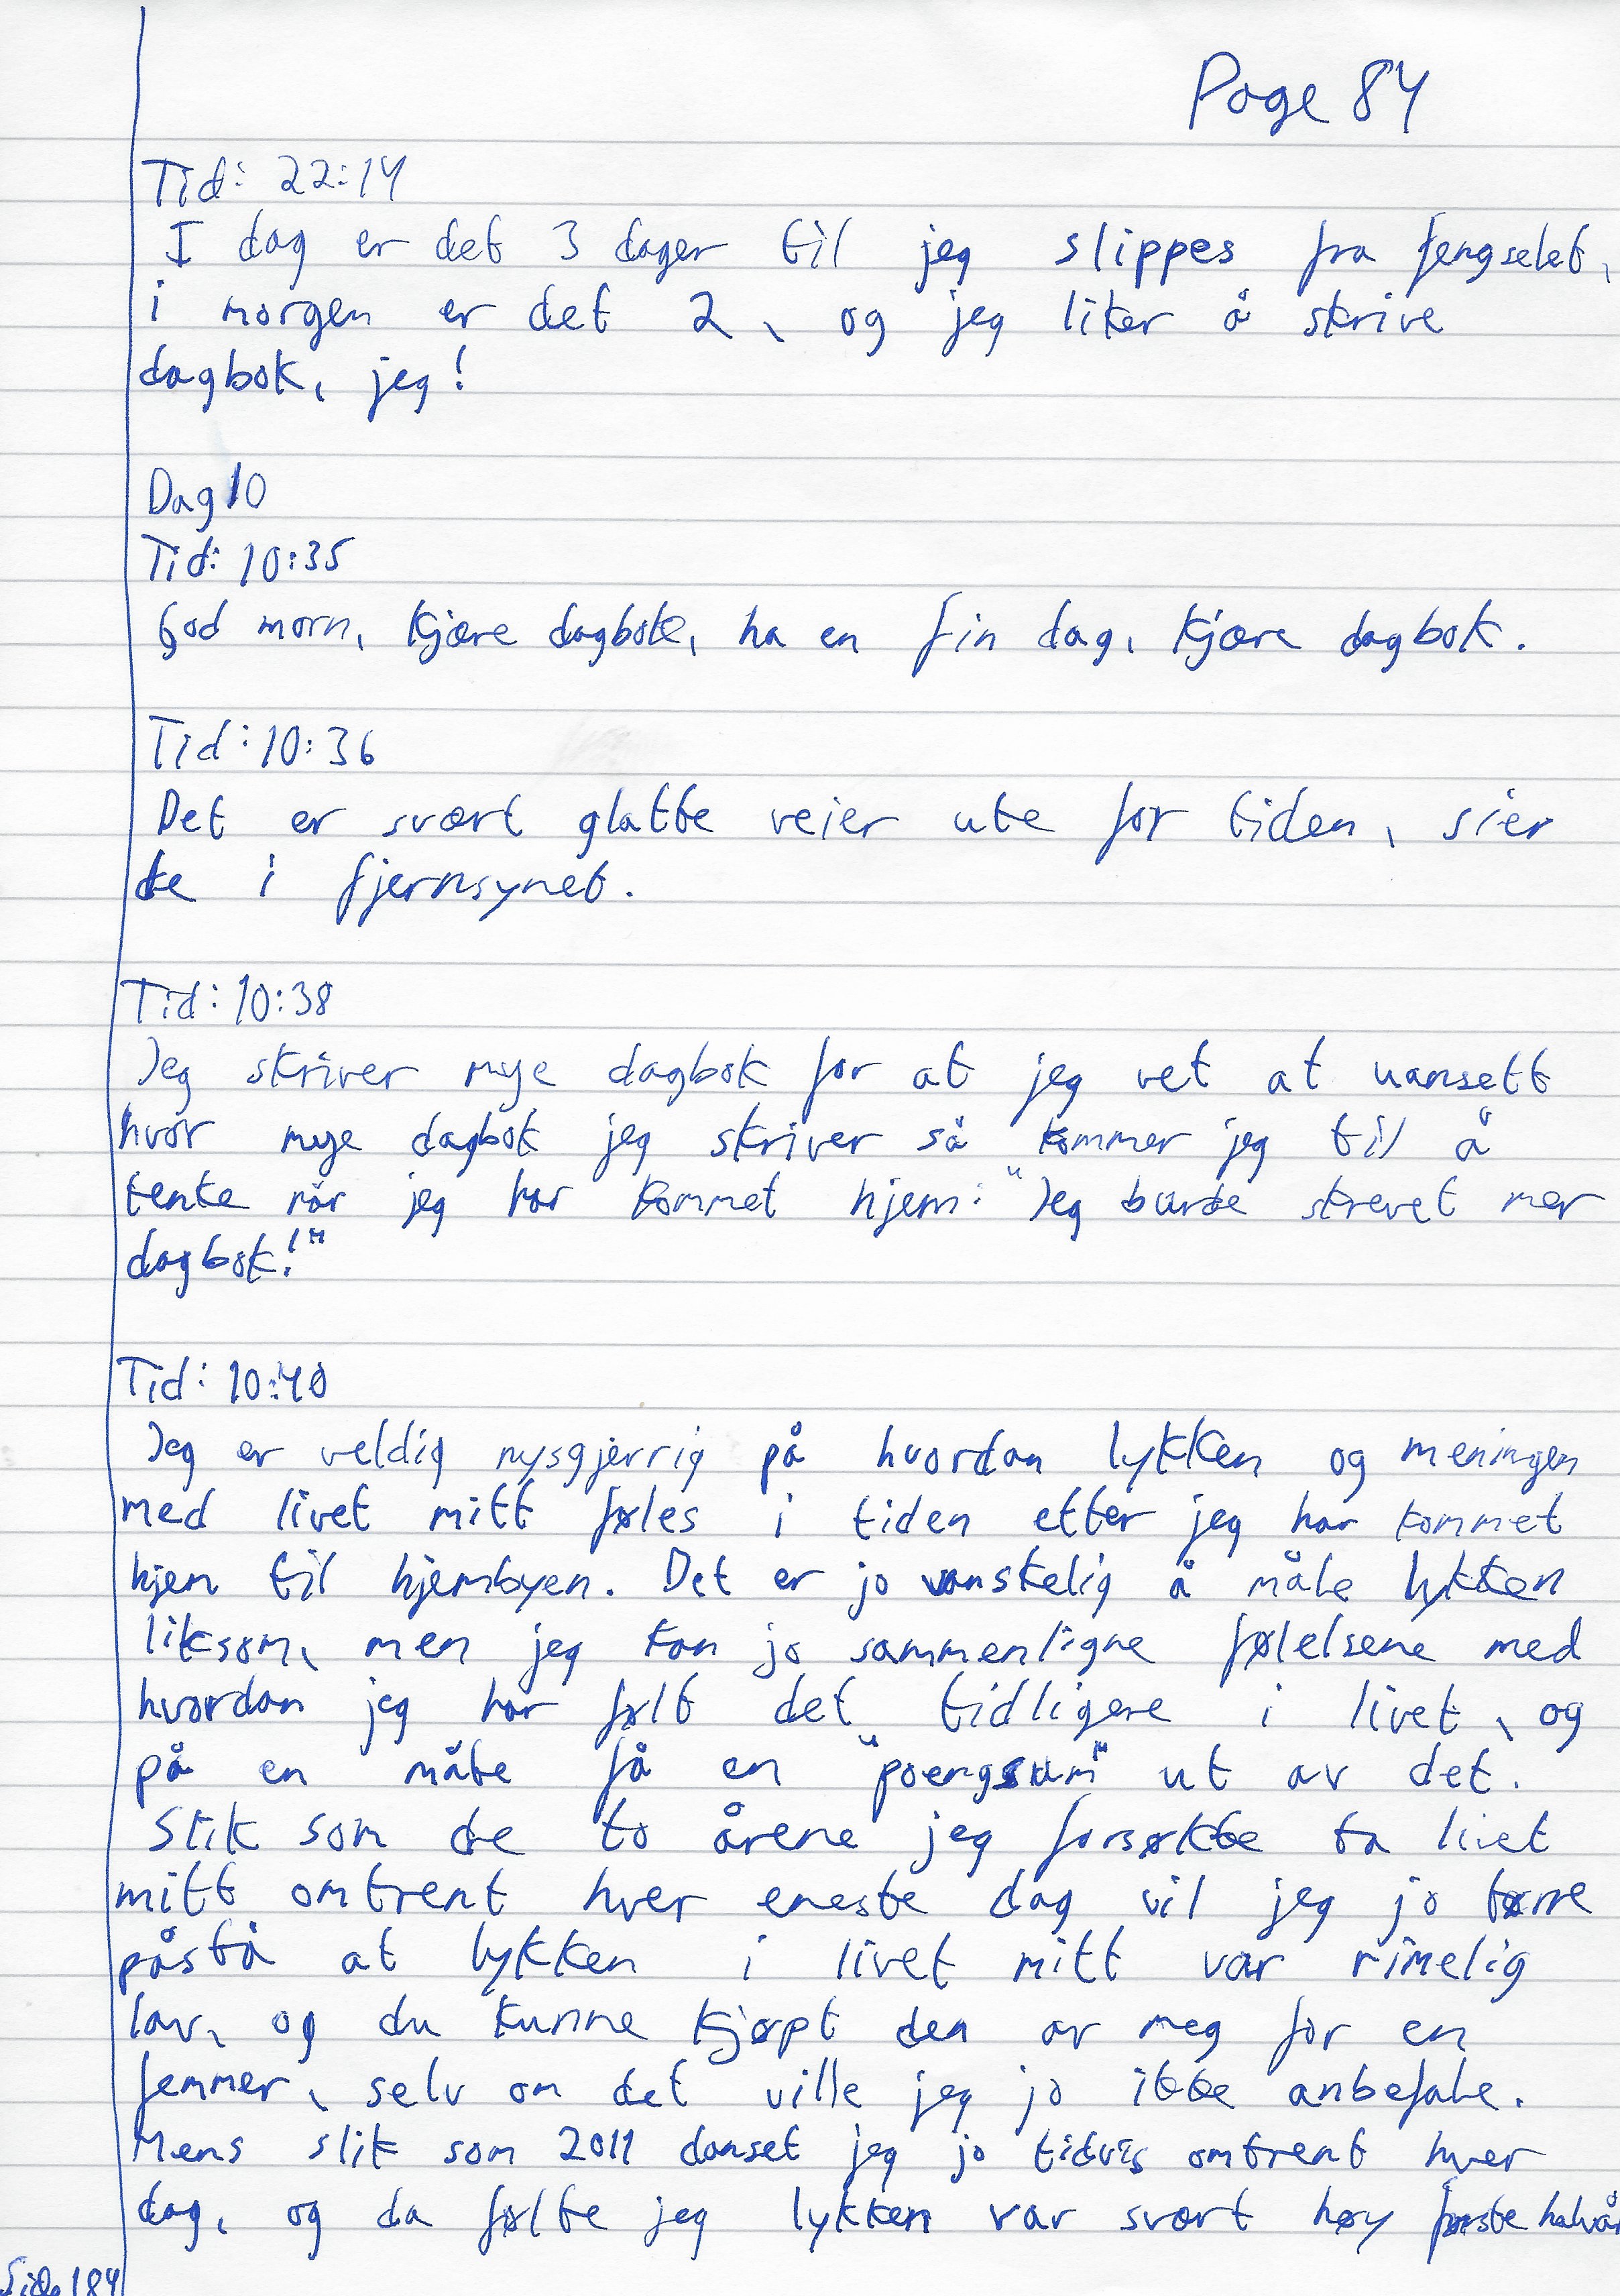 Page 84
Tid: 22:14
I dag er det 3 dager til jeg slippes fra fengselet,
i morgen er det 2, og jeg liker å skrive
dagbok, jeg!
Dag 10
Tid: 10:35
God morn, kjære dagbok, ha en fin dag, kjære dagbok.
Tid: 10:36
Det er svært glatte veier ute for tiden, sier
de i fjernsynet.
Tid: 10:38
Jeg skriver mye dagbok for at jeg vet at uansett
hvor mye dagbok jeg skriver så kommer jeg til å
tenke når jeg har kommet hjem: "Jeg burde skrevet mer
dagbok!"
Tid: 10:40
Jeg er veldig nysgjerrig på hvordan lykken og meningen
med livet mitt føles i tiden etter jeg har kommet
hjem til hjembyen. Det er jo vanskelig å måle lykken
liksom, men jeg kan jo sammenligne følelsene med
hvordan jeg har følt det tidligere i livet, og
på en måte få en "poengsum" ut av det.
Slik som de to årene jeg forsøkte ta livet
mitt omtrent hver eneste dag vil jeg jo tørre
påstå at lykken i livet mitt var rimelig
lav, og du kunne kjøpt den av meg for en
femmer, selv om det ville jeg jo ikke anbefale.
Mens slik som 2011 danset jeg jo tidvis omtrent hver
dag, og da følte jeg lykken var svært høy første halvår
Side 184